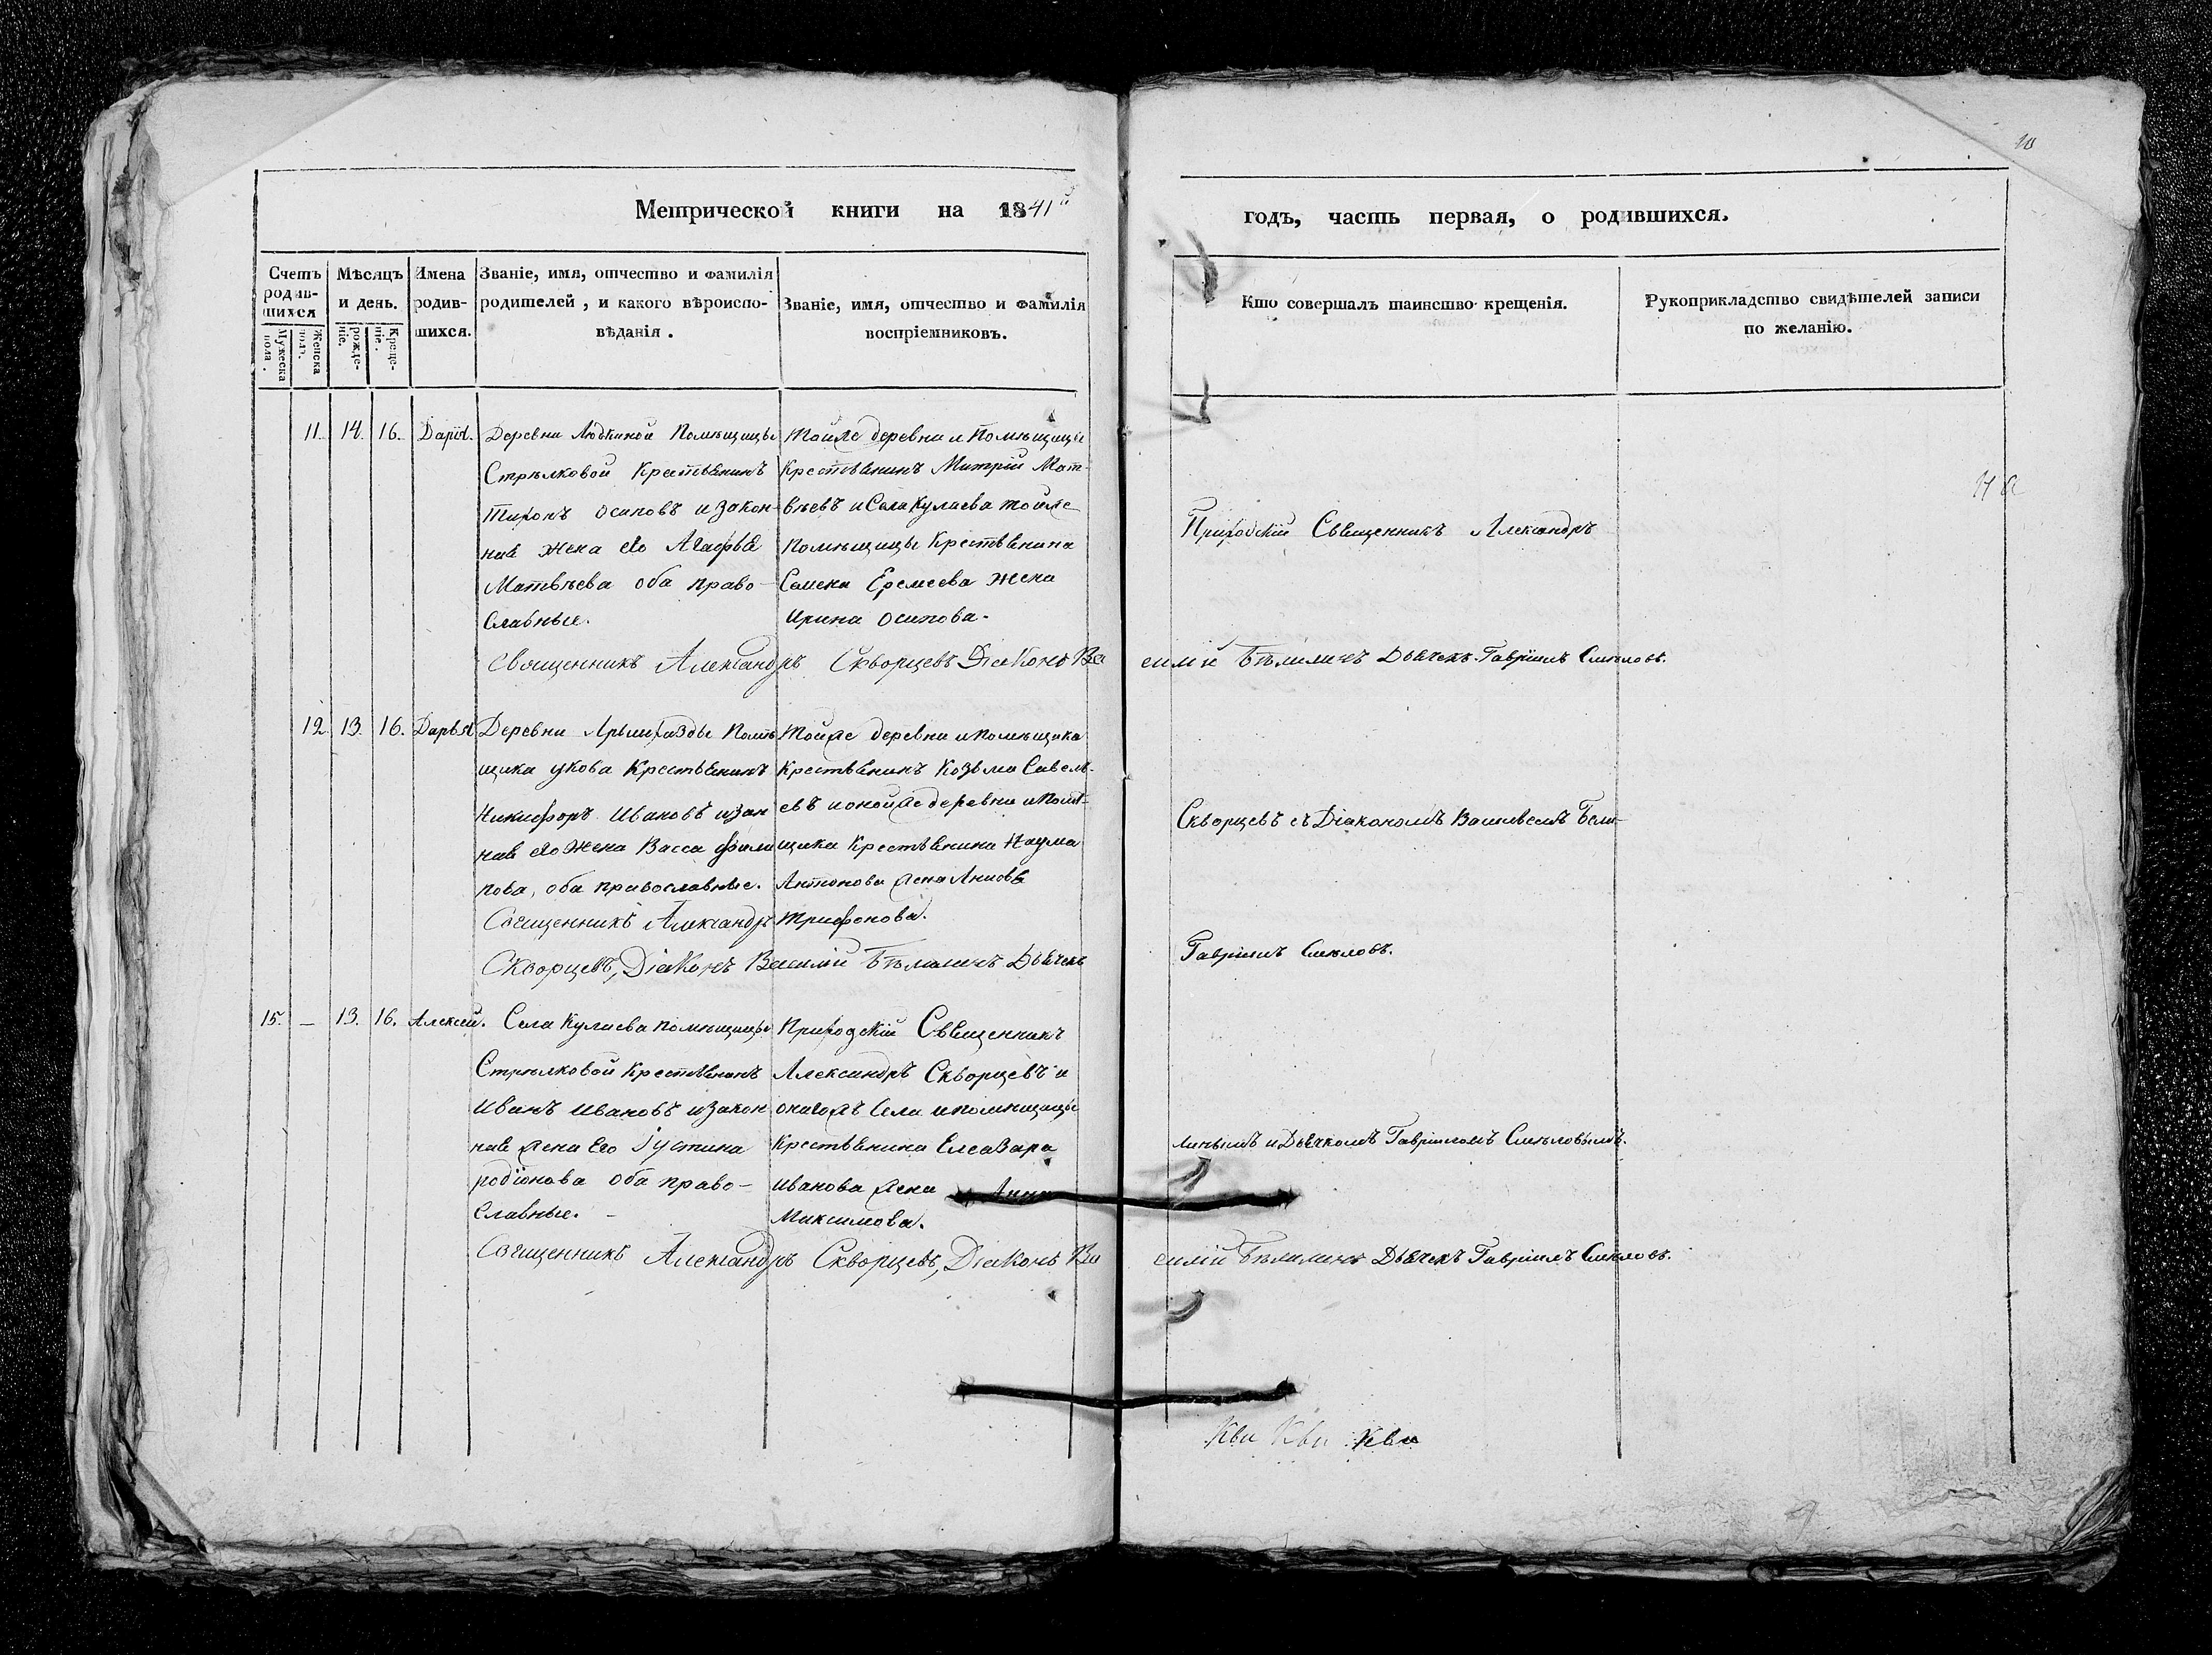 10
Метрической книги на 1841й
годъ, часть первая, о родившихся.
Счетъ родив-шихся
Мужеска пола.
Женска пола.
Мѣсяцъ и день.
рожде-ніе.
Креще-ніе.
Имена родив-шихся.
Званіе, имя, отчество и фамилія
родителей, и какого вѣроиспо-
вѣданія.
Званіе, имя, отчество и фамилія
воспріемниковъ.
Кто совершалъ таинство крещенія.
Рукоприкладство свидѣтелей записи
по желанію.
11. 14. 16. Дарія.
Деревни Людкиной Помѣщицы
Стрѣлковой Крестьянинъ
Тихонъ Осиповъ и закон-
ная жена его Агафья
Матвѣева оба право-
славные.
Тойже деревни и Помѣщицы
Крестьянинъ Митрій Мат-
вѣевъ и Села Кулаева тойже
Помѣщицы Крестьянина
Семена Еремеева жена
Ирина Осипова.
Священникъ Александръ Скворцевъ Діаконъ Ва
силій Бѣлилинъ Дьячекъ Гавріилъ Смѣловъ.
12 13. 16. Дарья
Деревни Помѣ
щика Укова Крестьянинъ
Никифоръ Ивановъ и зак
ная его жена Васса Фили
пова, оба православные.
Тойже деревни и помѣщика
Крестьянинъ Козьма Савель-
евъ и онойже деревни и Помѣ-
щика Крестьянина Наума
Антонова жена
Трифонова.
Священникъ Александръ
Скворцевъ, Діаконъ Василій Бѣлилинъ Дьячекъ
Гавріилъ Смѣловъ.
15. – 13. 16. Алексей.
Села Кулаева помѣщицы
Стрѣлковой Крестьянинъ
Иванъ Ивановъ и закон
ная жена Его Іустина
родіонова оба право-
славные. –
Приходскій Священникъ
Александръ Скворцевъ и
оногожъ Села и помѣщицы
Крестьянина Елеазара
Иванова жена Анна
Максимова.
Священникъ Александръ Скворцевъ, Діаконъ Ва
силій Бѣлилинъ Дьячекъ Гавріилъ Смѣловъ.
На
Приходскій Священникъ Александръ
Скворцевъ съ Діакономъ Васильемъ Бели-
линымъ и Дьячкомъ Гавріиломъ Смѣловымъ.
Кви Кви Кви